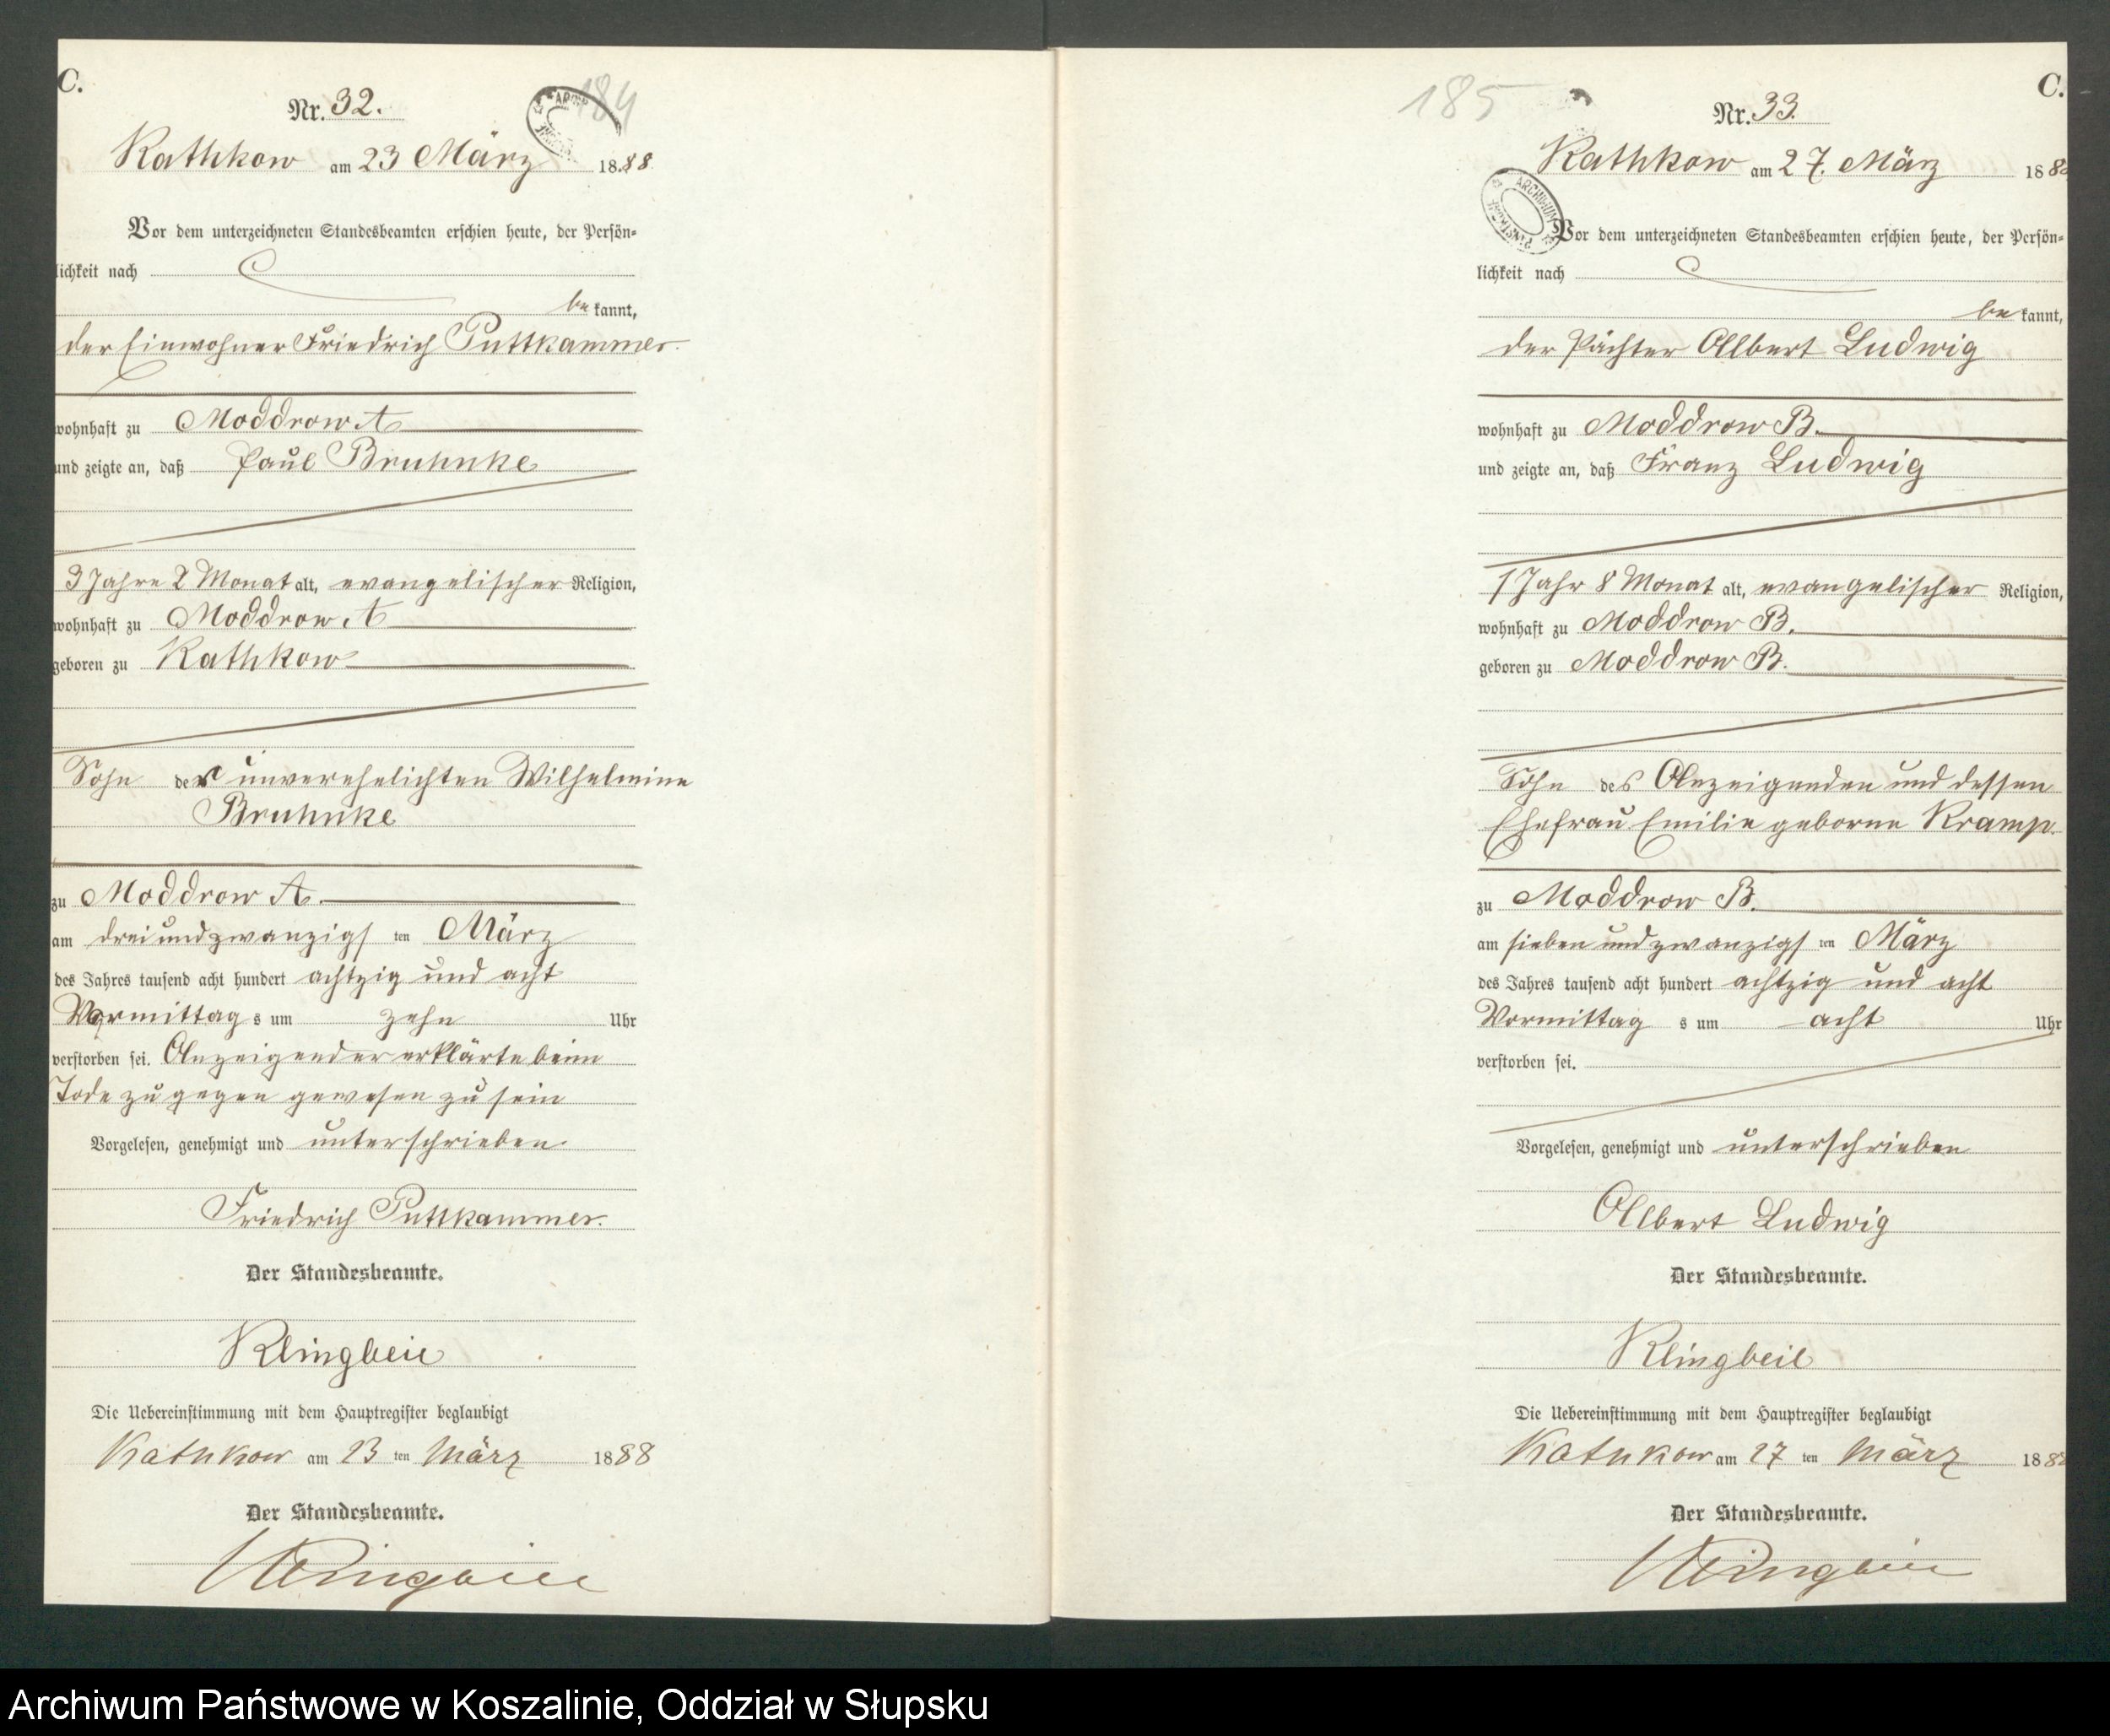 C.
184
Nr. 32.
Rathkow am 23 März 1888
Vor dem unterzeichneten Standesbeamten erschien heute, der Persön-
lichkeit nach
be kannt,
der Einwohner Friedrich Puttkammer
wohnhaft zu Moddrow A
und zeigte an, daß Paul Bruhnke
3 Jahre 2 Monat alt, evangelischer Religion,
wohnhaft zu Moddrow A
geboren zu Rathkow
Sohn der unverehelichten Wilhelmine
Bruhnke
zu Moddrow A.
am dreiundzwanzigs ten März
des Jahres tausend acht hundert achtzig und acht
Vormittag s um zehn Uhr
verstorben sei. Anzeigender erklärte beim
Tode zu gegen gewesen zu sein
Vorgelesen, genehmigt und unterschrieben
Friedrich Puttkammer.
Der Standesbeamte.
Klingbeil
Die Uebereinstimmung mit dem Hauptregister beglaubigt
Rathkow am 23 ten März 1888
Der Standesbeamte.
Klingbeil
185
C.
Nr. 33.
Rathkow am 27. März 188
ARCHIWUM
Vor dem unterzeichneten Standesbeamten erschien heute, der Persön-
lichkeit nach
be kannt,
der Pächter Albert Ludwig
wohnhaft zu Moddrow B.
und zeigte an, daß Franz Ludwig
1 Jahr 8 Monat alt, evangelischer Religion,
wohnhaft zu Moddrow B.
geboren zu Moddrow B.
Sohn des Anzeigenden und dessen
Ehefrau Emilie geborne Kramp.
zu Moddrow B.
am sieben und zwanzigs ten März
des Jahres tausend acht hundert achtzig und acht
Vormittag s um acht Uhr
verstorben sei.
Vorgelesen, genehmigt und unterschrieben
Albert Ludwig
Der Standesbeamte.
Klingbeil
Die Uebereinstimmung mit dem Hauptregister beglaubigt
Rathkow am 27 ten März 188
Der Standesbeamte.
Klingbeil
Archiwum Państwowe w Koszalinie, Oddział w Słupsku